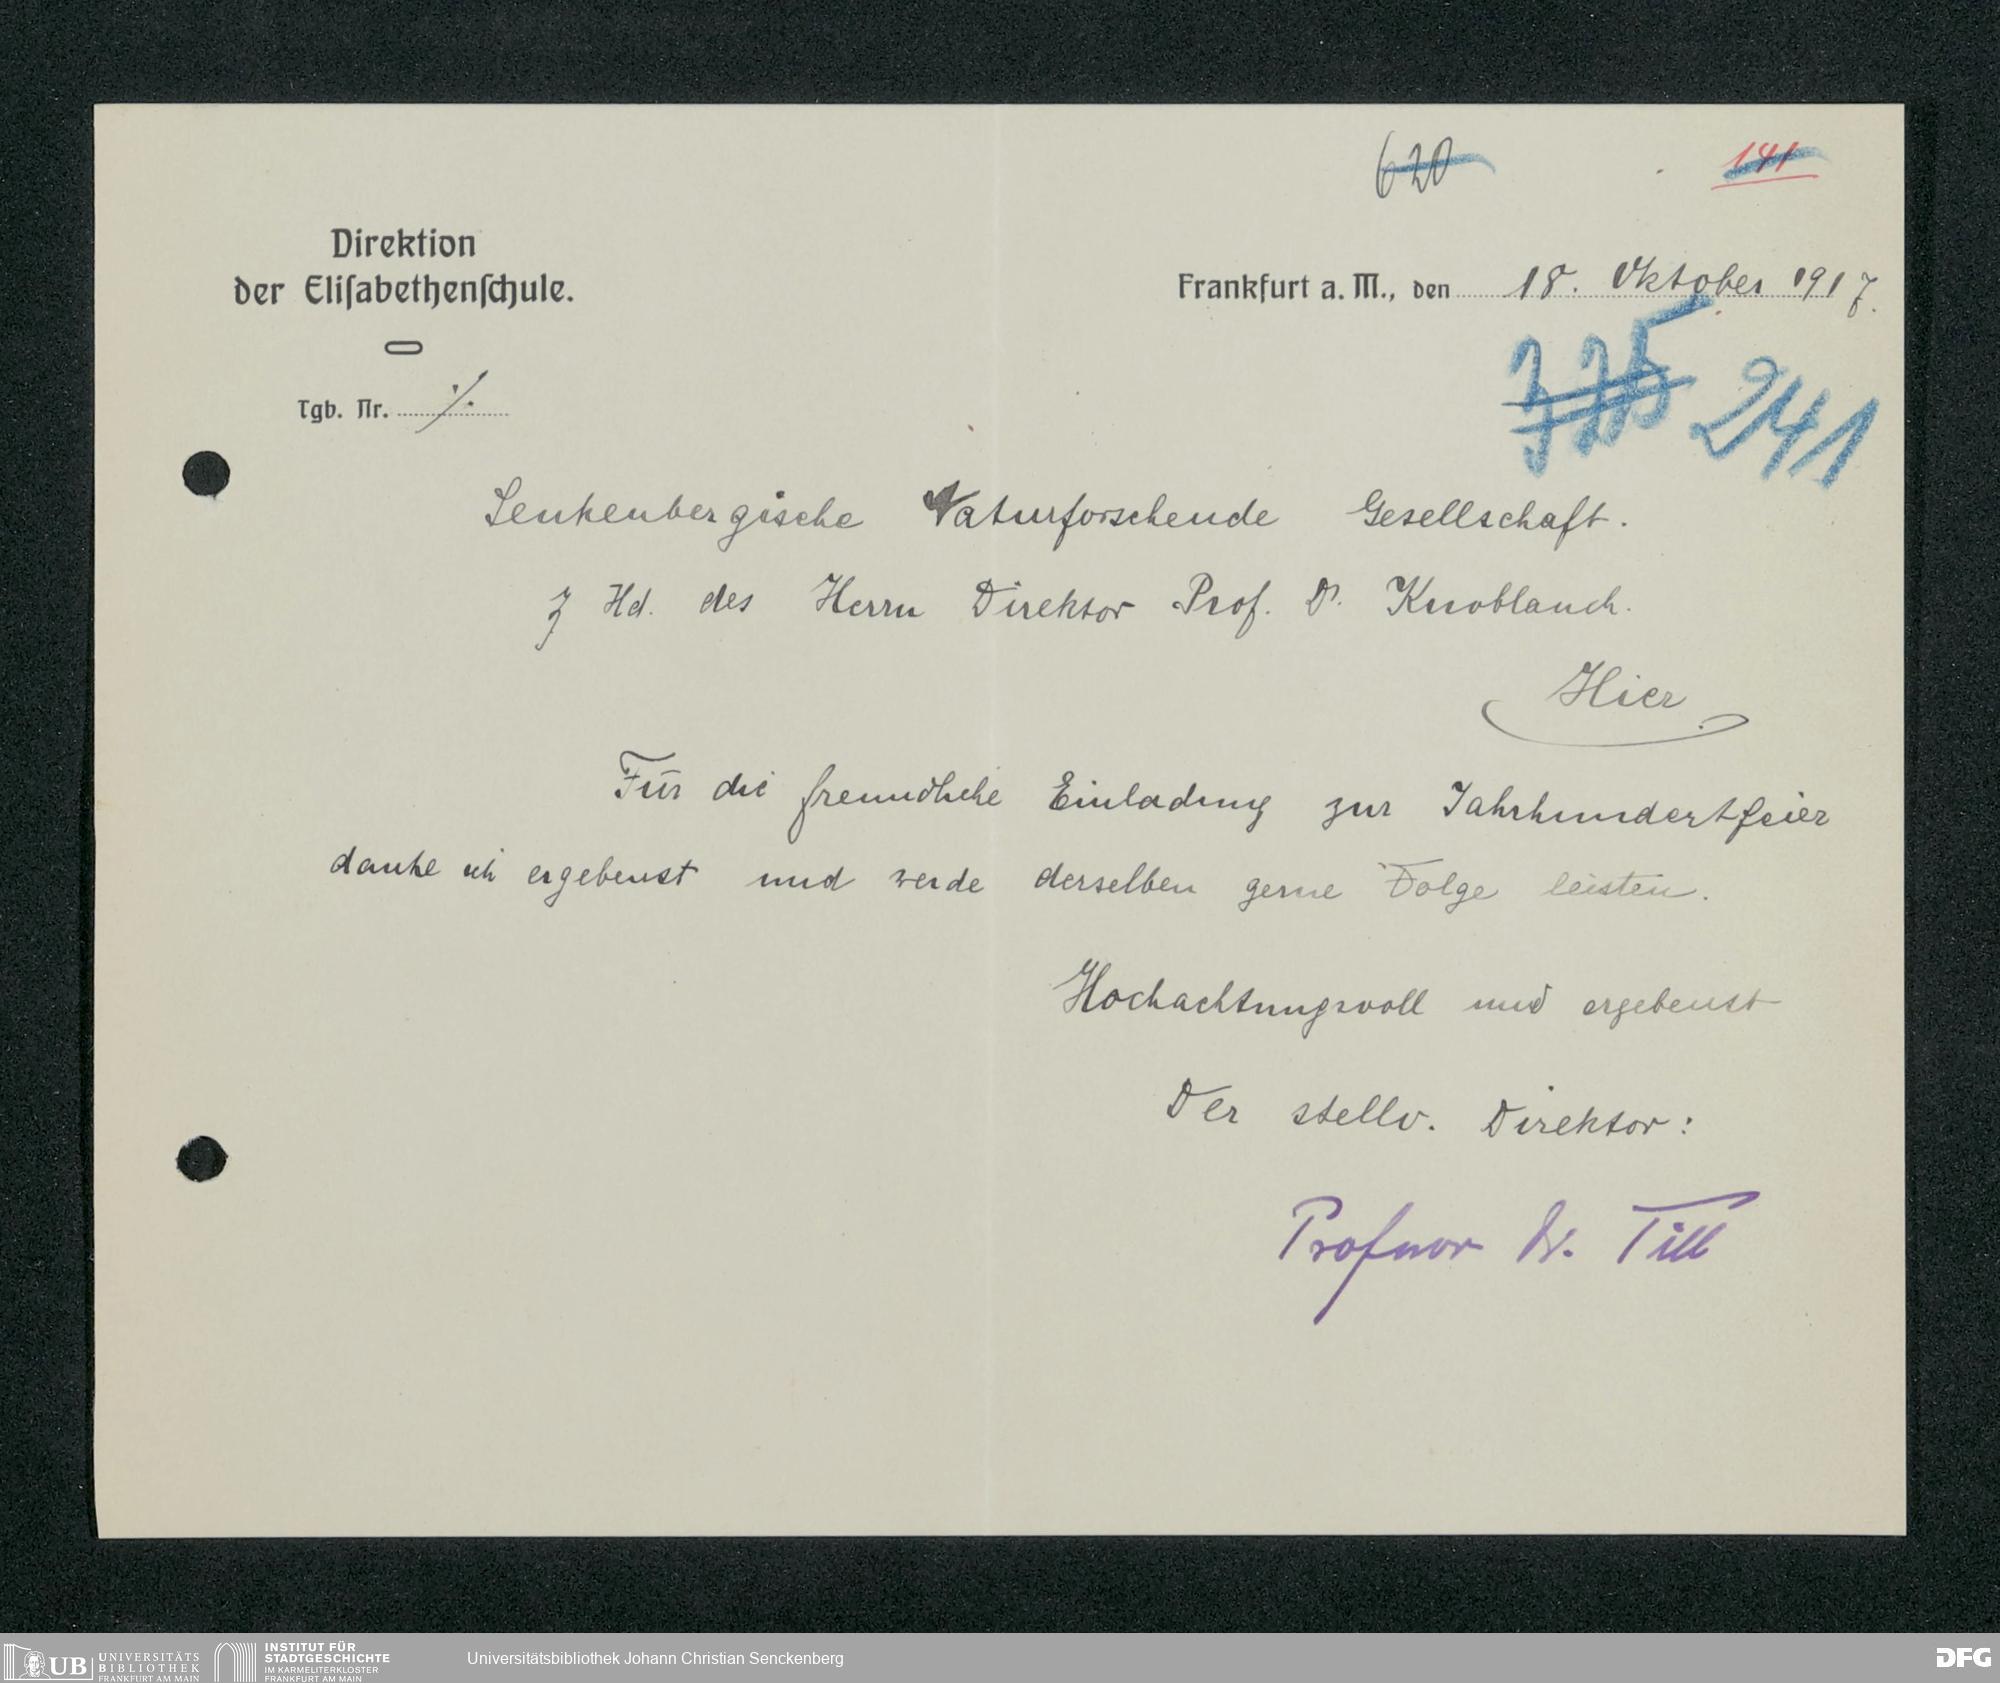 620
141
Direktion
der Eliſabethenſchule.
Frankfurt a. M., den 18. Oktober 1917.
Tgb. Nr. ./.
325 241
Senkenbergische Naturforschende Gesellschaft.
z Hd. des Herrn Direktor Prof. Dr. Knoblauch.
Hier
Für die freundliche Einladung zur Jahrhundertfeier
danke ich ergebenst und werde derselben gerne Folge leisten.
Hochachtungsvoll und ergebenst
Der stellv. Direktor:
Professor Dr. Till
UB UNIVERSITÄTS BIBLIOTHEK FRANKFURT AM MAIN
INSTITUT FÜR STADTGESCHICHTE IM KARMELITERKLOSTER FRANKFURT AM MAIN
Universitätsbibliothek Johann Christian Senckenberg
DFG